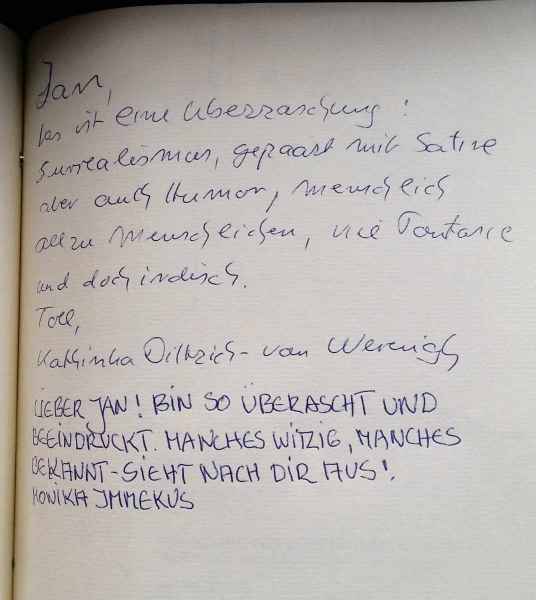 Jan,
das ist eine Überraschung!
Surrealismus, gepaart mit Satire
aber auch Humor, menschlich
allzu menschlichen, viel Fantasie
und doch irdisch.
Toll,
Kathinka Dittrich - van Weringh
LIEBER JAN! BIN SO ÜBERASCHT UND
BEEINDRUCKT. MANCHES WITZIG, MANCHES
BEKANNT - SIEHT NACH DIR AUS!
MONIKA IMMEKUS